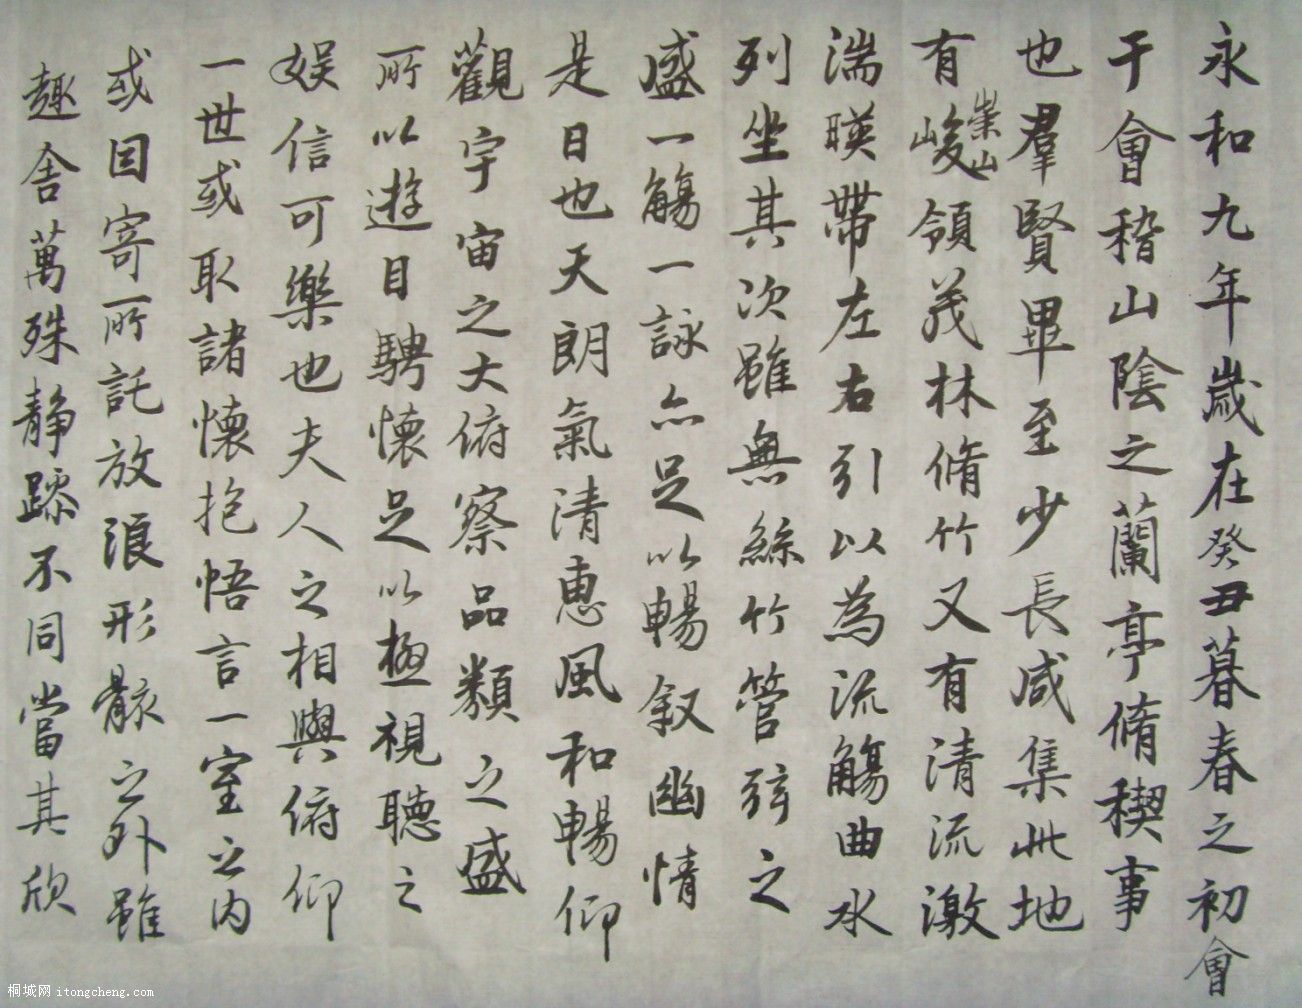 永和九年歲在癸丑暮春之初會
于會稽山陰之蘭亭脩稧事
也羣賢畢至少長咸集此地
有崇山峻領茂林脩竹又有清流激
湍暎帶左右引以為流觴曲水
列坐其次雖無絲竹管弦之
盛一觴一詠亦足以暢叙幽情
是日也天朗氣清惠風和暢仰
觀宇宙之大俯察品類之盛
所以遊目騁懷足以極視聽之
娱信可樂也夫人之相與俯仰
一世或取諸懷抱悟言一室之內
或因寄所託放浪形骸之外雖
趣舍萬殊静躁不同當其欣
桐城网 itongcheng.com